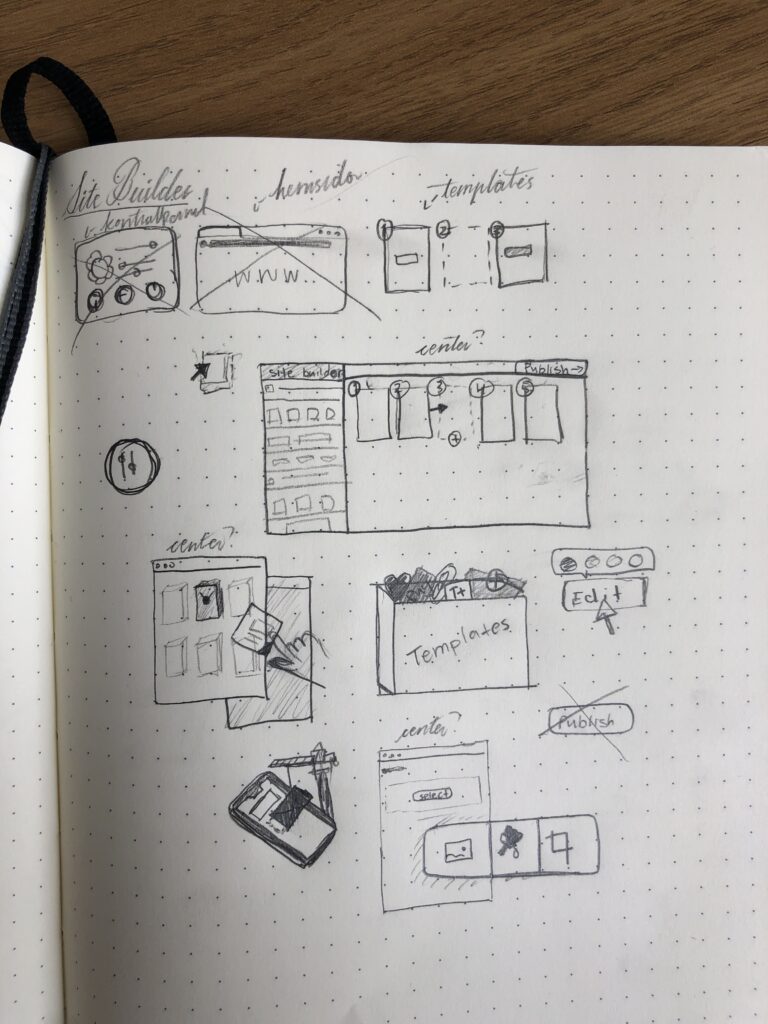 Site Builder
hemsida
templates
kontrollpanel
1
2
3
www.
center?
site builder
Publish →
1
2
3
4
5
+
center?
T+
+
Templates
Edit
Publish
center?
select